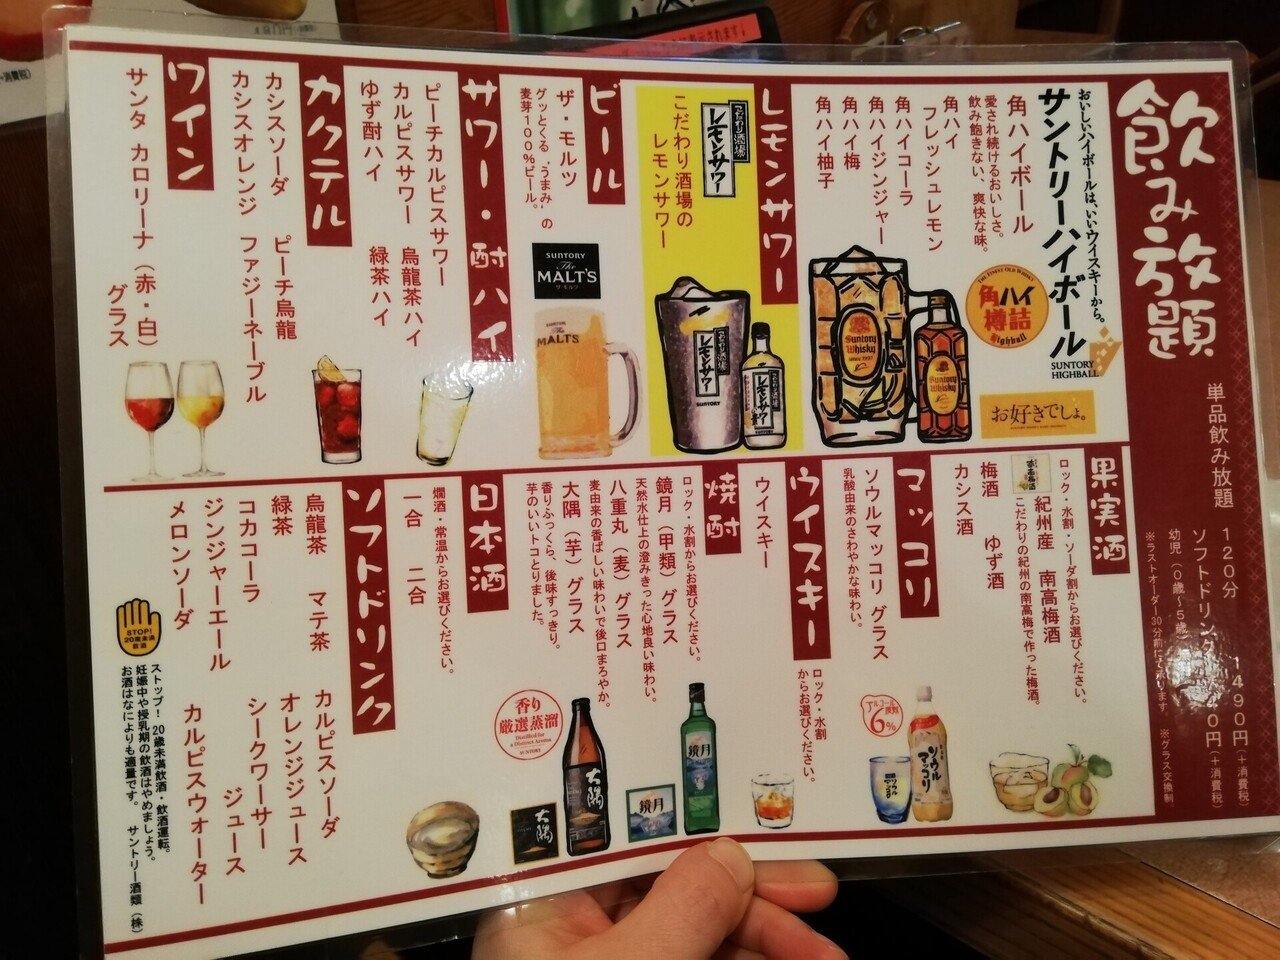 飲み放題
単品飲み放題 120分 1490円(+消費税)
ソフトドリンク
幼児(0歳〜5歳
※ラストオーダー30分前になります ※グラス交換制
おいしいハイボールは、いいウイスキーから。
サントリーハイボール
SUNTORY
HIGHBALL
お好きでしょ。
角ハイボール
愛され続けるおいしさ。
飲み飽きない、爽快な味。
THE FINEST OLD WHISKY
角ハイ
樽詰
Highball
角ハイ
フレッシュレモン
角ハイコーラ
角ハイジンジャー
角ハイ梅
角ハイ柚子
Suntory
Whisky
SINCE 1937
Suntory
Whisky
レモンサワー
こだわり酒場の
レモンサワー
こだわり酒場の
レモンサワー
こだわり酒場の
レモンサワー
SUNTORY
レモンサワー
ビール
ザ・モルツ
グッとくる“うまみ”の
麦芽100%ビール。
SUNTORY
The
MALT'S
ザ・モルツ
SUNTORY
The
MALT'S
サワー・酎ハイ
ピーチカルピスサワー
カルピスサワー 烏龍茶ハイ
ゆず酎ハイ 緑茶ハイ
カクテル
カシスソーダ ピーチ烏龍
カシスオレンジ ファジーネーブル
ワイン
サンタ カロリーナ(赤・白)
グラス
果実酒
ロック・水割・ソーダ割からお選びください。
紀州産 南高梅酒
こだわりの紀州の南高梅で作った梅酒。
梅酒 ゆず酒
カシス酒
マッコリ
ソウルマッコリ グラス
乳酸由来のさわやかな味わい。
アルコール度数
6%
ソウル
マッコリ
ソウル
マッコリ
ウイスキー
ロック・水割
からお選びください。
ウイスキー
焼酎
ロック・水割からお選びください。
鏡月(甲類)グラス
天然水仕上の澄みきった心地良い味わい。
八重丸(麦)グラス
麦由来の香ばしい味わいで後口まろやか。
大隅(芋)グラス
香りふっくら、後味すっきり。
芋のいいトコとりました。
鏡月
鏡月
大隅
大隅
香り
厳選蒸溜
Distilled for
a Distinct Aroma
SUNTORY
日本酒
燗酒・常温からお選びください。
一合 二合
ソフトドリンク
烏龍茶 マテ茶 カルピスソーダ
緑茶 オレンジジュース
コカコーラ シークワーサー
ジンジャーエール ジュース
メロンソーダ カルピスウォーター
STOP!
20歳未満
飲酒
ストップ! 20歳未満飲酒・飲酒運転。
妊娠中や授乳期の飲酒はやめましょう。
お酒はなによりも適量です。 サントリー酒類(株)